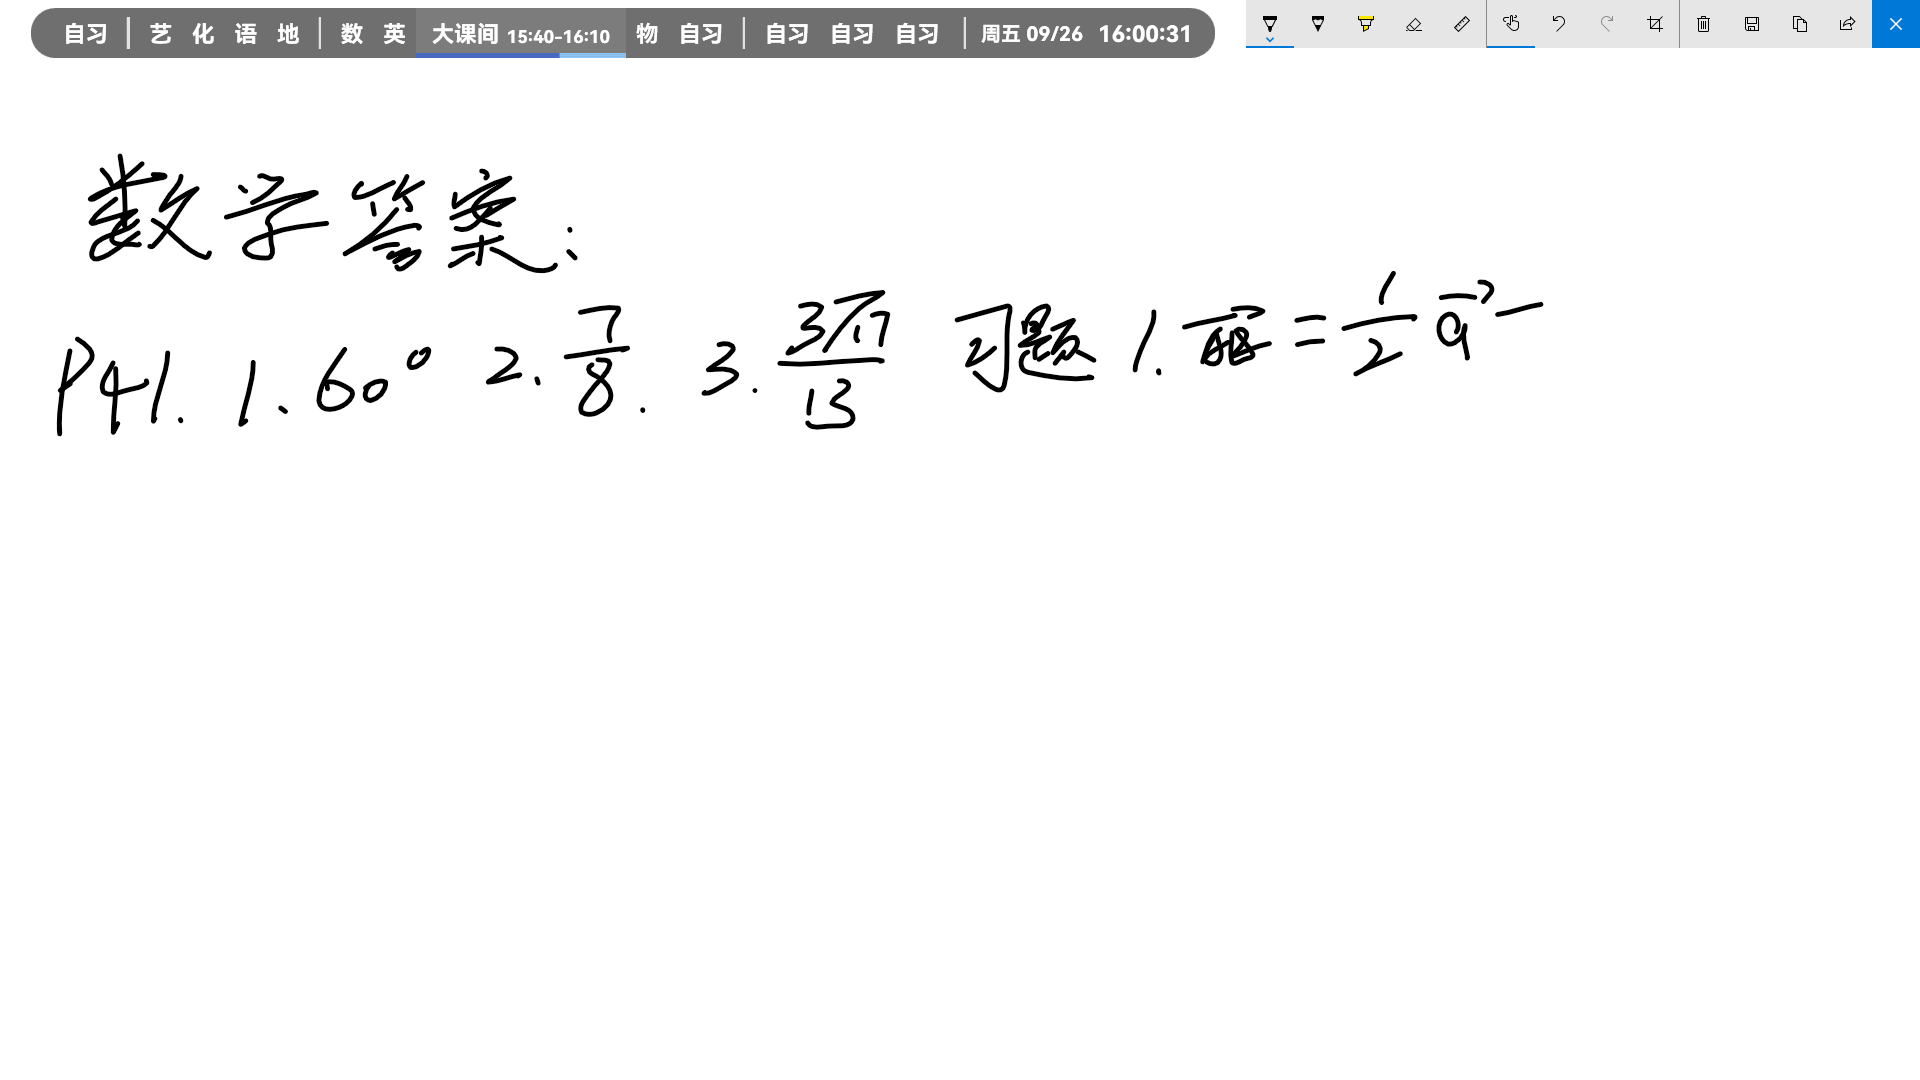 自习 | 艺 化 语 地 | 数 英 大课间 15:40-16:10 物 自习 | 自习 自习 自习 | 周五 09/26 16:00:31
数学答案:
P41. 1. 60° 2. 7/8. 3. 3√17/13 习题 1. = 1/2 a⃗ -